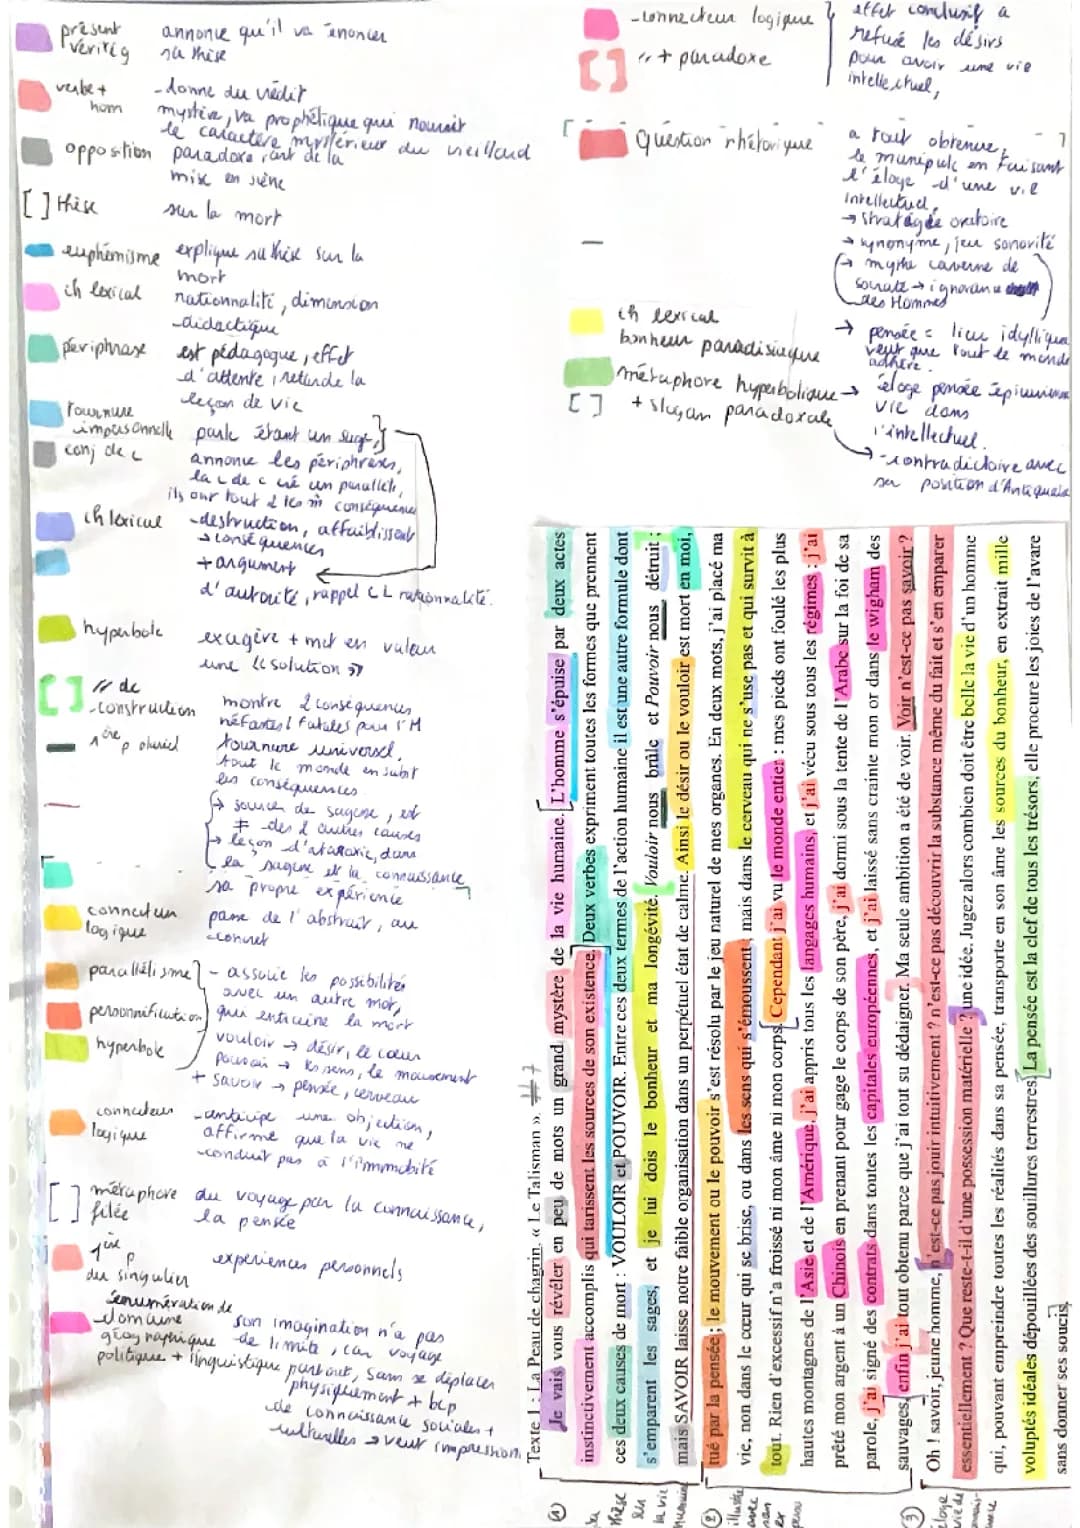 présent
vérité g
annonce qu'il va énoncer
sa thèse
verbe +
nom
- donne du crédit
mystère, va prophétique qui nourrit
le caractère mystérieur du vieillard
opposition
paradoxe, art de la
mise en scène
[ ] thèse
sur la mort
euphémisme
explique sa thèse sur la
mort
ch lexical
rationnalité, dimension
didactique
périphrase
est pédagogue, effet
d'attente, retarde la
leçon de vie
tournure
impersonnelle
parle étant un sage,
conj de c
annonce les périphrases,
la c de c créé un parallèle,
ils ont tout 2 les m̂ conséquences
ch lexicue
- destruction, affaiblissant
→ conséquences
+ argument
d'autorité, rappel CL rationnalité.
hyperbole
exagère + met en valeur
une « solution »
[ ] // de
construction
montre 2 conséquences
néfastes / fatales pour l'H
1ère p pluriel
tournure universel,
tout le monde en subit
les conséquences
→ source de sagesse, est
≠ des 2 autres causes
→ leçon d'ataraxie, dans
la sagesse et la connaissance
sa propre expérience
connecteur
logique
passe de l'abstrait, au
concret
parallélisme
- associe les possibilités
avec un autre mot,
personnification
qui entraine la mort
hyperbole
vouloir → désir, le cœur
pouvoir → les sens, le mouvement
+ savoir → pensée, cerveau
connecteur
logique
- anticipe une objection,
affirme que la vie ne
conduit pas à l'immobité
[ ] métaphore
filée
du voyage par la connaissance,
la pensée
1ère
p
du singulier
expériences personnels
énumération de
domaine
géographique
politique + linguistique
son imagination n'a pas
de limite, car voyage
partout, sans se déplacer
physiquement + bcp
de connaissance sociales +
culturelles → veut impressionn
- connecteur logique
[ ] " + paradoxe
effet conclusif a
refusé les désirs
pour avoir une vie
intellectuel,
question rhétorique
a tout obtenue,
le manipule en faisant
l'éloge d'une vie
intellectuel,
→ stratégie oratoire
→ synonyme, jeu sonorité
→ mythe caverne de
Socrate → ignorance
des Hommes
ch lexical
bonheur paradisiaque
→ pensée = lieu idyllique
veut que tout le monde
adhère.
métaphore hyperbolique →
[ ] + slogan paradoxale
éloge pensée épicurienne
vie dans
l'intellectuel.
→ - contradictoire avec
sa position d'Antiquaire
Texte 1 : La Peau de chagrin, « Le Talisman ». #7
Je vais vous révéler en peu de mots un grand mystère de la vie humaine. L'homme s'épuise par deux actes
instinctivement accomplis qui tarissent les sources de son existence. Deux verbes expriment toutes les formes que prennent
ces deux causes de mort : VOULOIR et POUVOIR. Entre ces deux termes de l'action humaine il est une autre formule dont
s'emparent les sages, et je lui dois le bonheur et ma longévité. Vouloir nous brûle et Pouvoir nous détruit ;
mais SAVOIR laisse notre faible organisation dans un perpétuel état de calme. Ainsi le désir ou le vouloir est mort en moi,
tué par la pensée ; le mouvement ou le pouvoir s'est résolu par le jeu naturel de mes organes. En deux mots, j'ai placé ma
vie, non dans le cœur qui se brise, ou dans les sens qui s'émoussent, mais dans le cerveau qui ne s'use pas et qui survit à
tout. Rien d'excessif n'a froissé ni mon âme ni mon corps. Cependant j'ai vu le monde entier : mes pieds ont foulé les plus
hautes montagnes de l'Asie et de l'Amérique, j'ai appris tous les langages humains, et j'ai vécu sous tous les régimes : j'ai
prêté mon argent à un Chinois en prenant pour gage le corps de son père, j'ai dormi sous la tente de l'Arabe sur la foi de sa
parole, j'ai signé des contrats dans toutes les capitales européennes, et j'ai laissé sans crainte mon or dans le wigham des
sauvages, enfin j'ai tout obtenu parce que j'ai tout su dédaigner. Ma seule ambition a été de voir. Voir n'est-ce pas savoir ?
Oh ! savoir, jeune homme, n'est-ce pas jouir intuitivement ? n'est-ce pas découvrir la substance même du fait et s'en emparer
essentiellement ? Que reste-t-il d'une possession matérielle ? une idée. Jugez alors combien doit être belle la vie d'un homme
qui, pouvant empreindre toutes les réalités dans sa pensée, transporte en son âme les sources du bonheur, en extrait mille
voluptés idéales dépouillées des souillures terrestres. La pensée est la clef de tous les trésors, elle procure les joies de l'avare
sans donner ses soucis.
① sa
thèse
sur
la vie
humaine
② illustre
avec
son
ex
perso
③ éloge
vie de